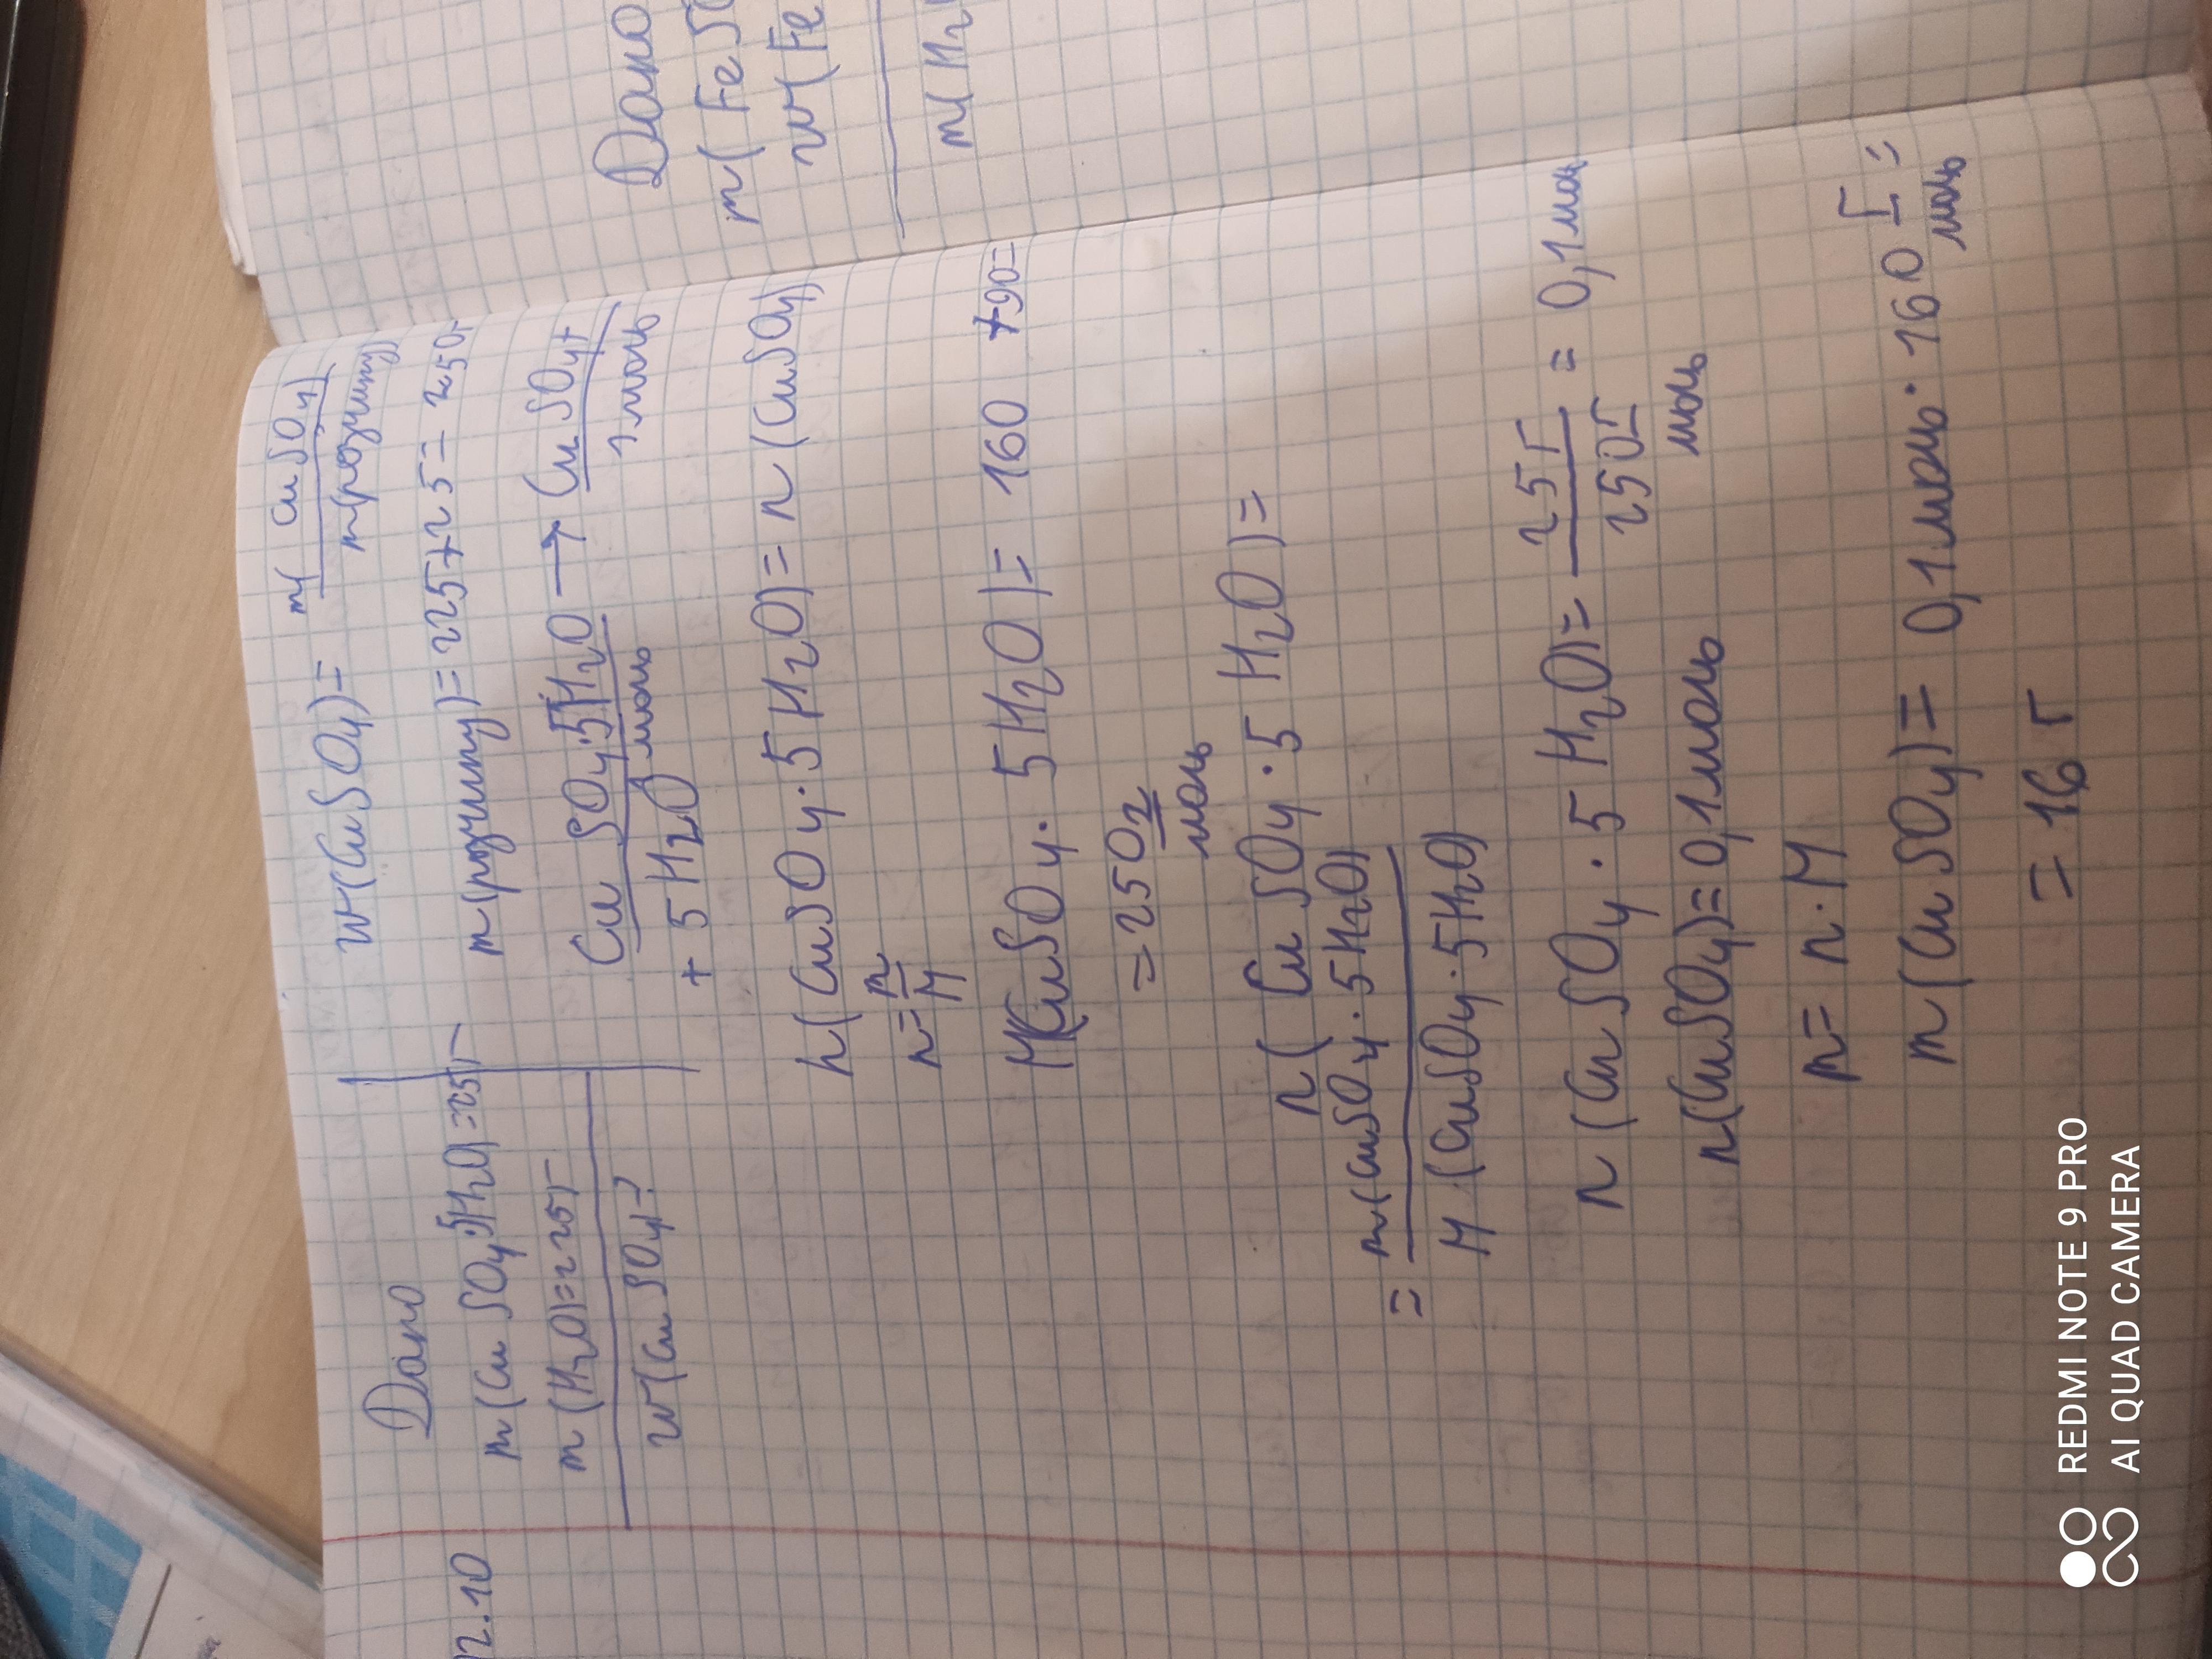 12.10
Дано
m(CuSO4·5H2O)=25г
m(H2O)=225г
w(CuSO4)-?
w(CuSO4)= m(CuSO4)
m(розчину)
m(розчину)=225+25=250г
CuSO4·5H2O → CuSO4+
1 моль 1 моль
+ 5 H2O
n(CuSO4·5H2O)=n(CuSO4)
n=m/M
M(CuSO4·5H2O)= 160 +90=
=250 г/моль
n(CuSO4·5H2O)=
= m(CuSO4·5H2O)
M(CuSO4·5H2O)
n(CuSO4·5H2O)= 25г = 0,1моль
250г
моль
n(CuSO4)=0,1моль
m=n·M
m(CuSO4)= 0,1моль·160 г/моль =
= 16 г
Дано
m(FeSO
w(Fe
m(H2
REDMI NOTE 9 PRO
AI QUAD CAMERA